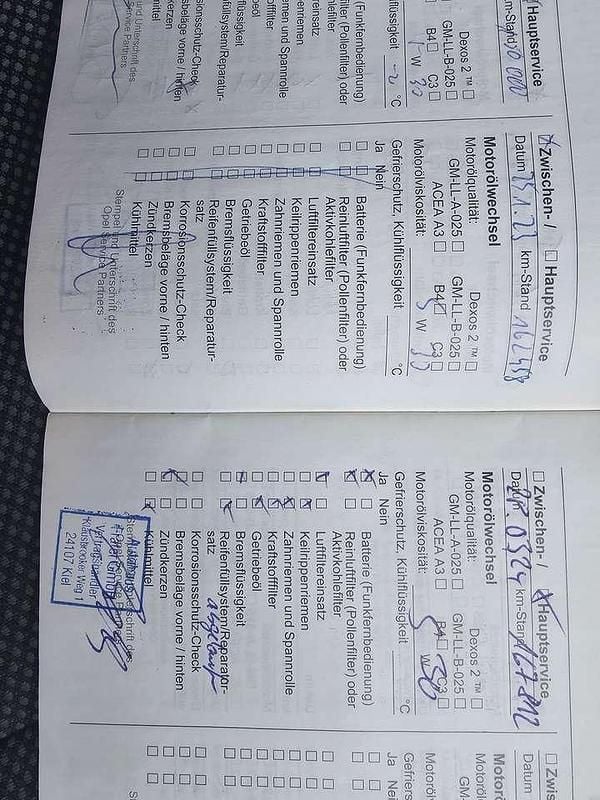 Hauptservice
m-Stand
Dexos 2 ™ ☐
GM-LL-B-025 ☐
B4 ☐ C3 ☐
W 30
flüssigkeit °C
(Funkfernbedienung)
filter (Pollenfilter) oder
hlefilter
tereinsatz
iemen
emen und Spannrolle
offfilter
eöl
flüssigkeit
üllsystem/Reparatur-
osionsschutz-Check
beläge vorne / hinten
kerzen
mittel
und Unterschrift des
ervice Partners
☒ Zwischen- / ☐ Hauptservice
Datum 15.1.23 km-Stand 162458
Motorölwechsel
Motorölqualität: Dexos 2 ™ ☐
GM-LL-A-025 ☐ GM-LL-B-025 ☐
ACEA A3 ☐ B4 ☐ C3
Motorölviskosität: 5 W 30
Gefrierschutz, Kühlflüssigkeit °C
Ja Nein
☐ ☐ Batterie (Funkfernbedienung)
☐ ☐ Reinluftfilter (Pollenfilter) oder
Aktivkohlefilter
☐ ☐ Luftfiltereinsatz
☐ ☐ Keilrippenriemen
☐ ☐ Zahnriemen und Spannrolle
☐ ☐ Kraftstofffilter
☐ ☐ Getriebeöl
☐ ☐ Bremsflüssigkeit
☐ ☐ Reifenfüllsystem/Reparatur-
satz
☐ ☐ Korrosionsschutz-Check
☐ ☐ Bremsbeläge vorne / hinten
☐ ☐ Zündkerzen
☐ ☐ Kühlmittel
Stempel und Unterschrift des
Opel Service Partners
☐ Zwischen- / ☒ Hauptservice
Datum 0324 km-Stand 167812
Motorölwechsel
Motorölqualität: Dexos 2 ™ ☐
GM-LL-A-025 ☐ GM-LL-B-025 ☐
ACEA A3 ☐ B4 ☐ C3 ☐
Motorölviskosität: 5 W 30
Gefrierschutz, Kühlflüssigkeit °C
Ja Nein
☒ ☐ Batterie (Funkfernbedienung)
☒ ☐ Reinluftfilter (Pollenfilter) oder
Aktivkohlefilter
☒ ☐ Luftfiltereinsatz
☐ ☒ Keilrippenriemen
☐ ☒ Zahnriemen und Spannrolle
☐ ☒ Kraftstofffilter
☐ ☒ Getriebeöl
☒ ☐ Bremsflüssigkeit
☐ ☒ Reifenfüllsystem/Reparatur-
satz abgelaufen
☐ ☐ Korrosionsschutz-Check
☒ ☐ Bremsbeläge vorne / hinten
☐ ☒ Zündkerzen
☐ ☒ Kühlmittel
GmbH
Vertragshändler
Weg 1
24107 Kiel
☐ Zwis
Datum
Motorö
Motorölqu
GM-L
Motorölv
Gefriers
Ja Nein